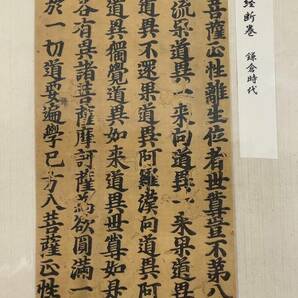 経断巻 鎌倉時代
菩薩正性離生位者世尊豈不第八
流果道異一来向道異一来果道異
道異不還果道異阿羅漢向道異阿
道異獨覺道異如来道異世尊如是
各有異諸菩薩摩訶薩為欲圓滿一
於一切道要遍學已方入菩薩正性